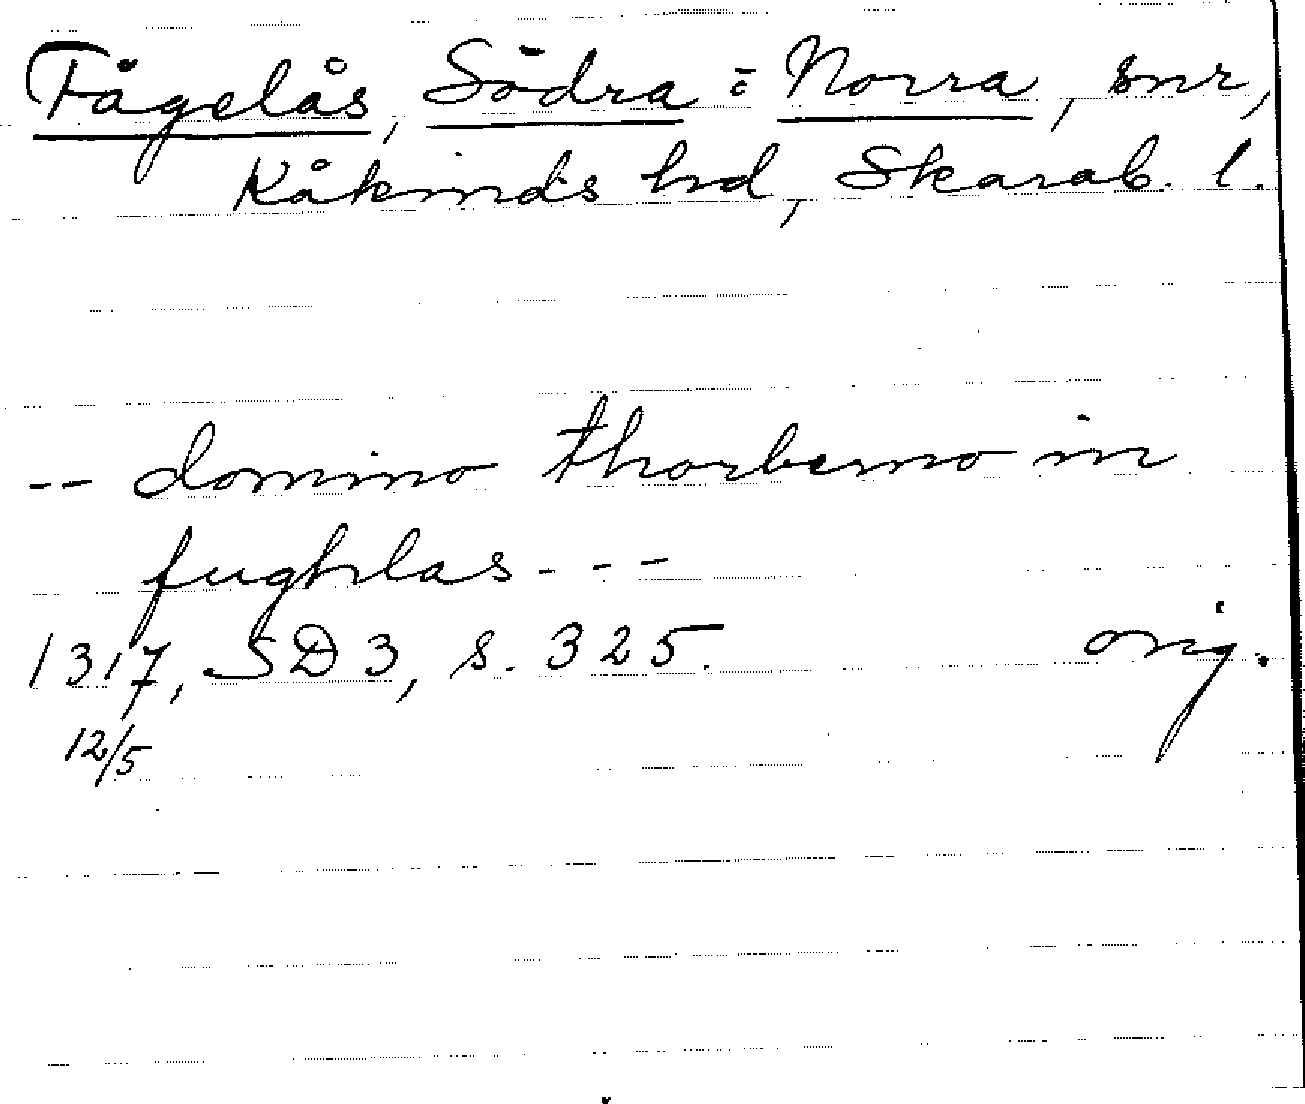 Fågelås, Södra o Norra, snr,
Kåkinds hd, Skarab. l.
-- domino thorberno in
fughlas ---
1317, SD 3, s. 325. orig.
12/5